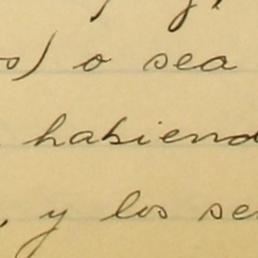 os) o sea
habiend
, y los se